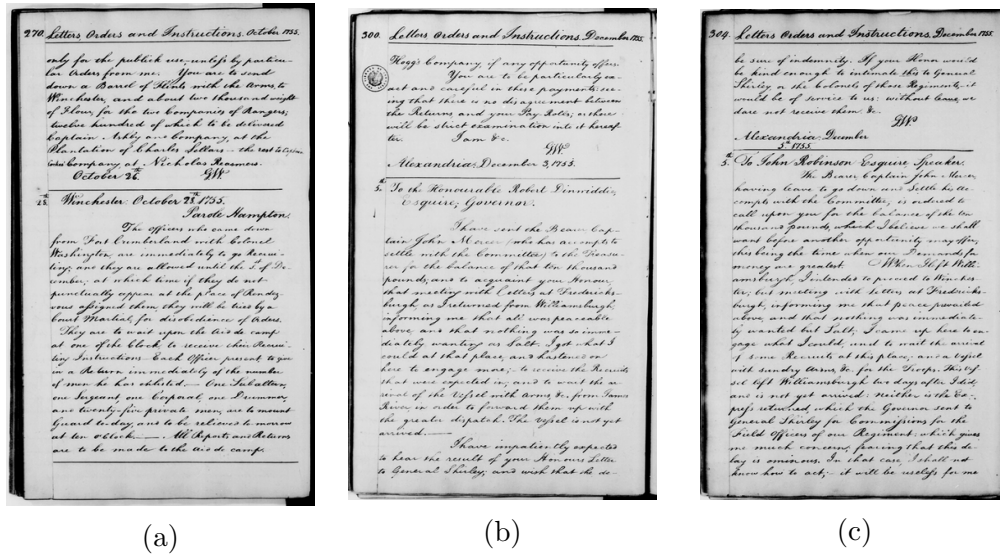 270. Letters, Orders and Instructions. October 1755.
only for the publick use, unless by particu-
lar Orders from me. You are to send
down a Barrel of Flints with the Arms, to
Winchester, and about two thousand weight
of Flour, for the two Companies of Rangers;
twelve hundred of which to be delivered
Captain Ashby and Company, at the
Plantation of Charles Sellars - the rest to Captain
Cockes Company, at Nicholas Reasmers.
October 26. GW.
28. Winchester: October 28th 1755.
Parole Hampton.
The Officers who came down
from Fort Cumberland with Colonel
Washington, are immediately to go Recrui-
ting; and they are allowed until the 1st of De-
cember, at which time if they do not
punctually appear at the place of Rendez-
vous assigned them, they will be tried by a
Court Martial, for disobedience of Orders.
They are to wait upon the Aid de camp
at one of the Clock, to receive their Recrui-
ting Instructions. Each Officer present, to give
in a Return immediately of the number
of men he has enlisted. One Subaltern,
one Sergeant, one Corporal, one Drummer,
and twenty-five private men, are to mount
Guard to day, and to be relieved to-morrow
at ten o'clock. All Reports and Returns
are to be made to the Aid de camp.
(a)
300. Letters, Orders and Instructions. December 1755.
Hogg's Company, if any opportunity offers.
You are to be particularly ex-
act and careful in these payments: see-
ing that there is no disagreement between
the Returns and your Pay Rolls; as there
will be strict examination into it hereaf-
ter. I am &c.
GW.
Alexandria: December 3, 1755.
5th. To the Honourable Robert Dinwiddie,
Esquire; Governor.
I have sent the Bearer Cap-
tain John Mercer (who has accompts to
settle with the Committee) to the Treasu-
rer for the balance of that ten thousand
pounds; and to acquaint your Honour,
that meeting with Letters at Fredericks-
burgh, as I returned from Williamsburgh,
informing me that all was peaceable
above and that nothing was so imme-
diately wanting as Salt. I got what I
could at that place, and hastened on
here to engage more; to receive the Recruits
that were expected in; and to wait the ar-
rival of the Vessel with Arms &c. from James
River, in order to forward them up with
the greater dispatch. The Vessel is not yet
arrived.
I have impatiently expected
to hear the result of your Honours Letter
to General Shirley; and wish that the de-
(b)
304. Letters, Orders and Instructions. December 1755.
be sure of indemnity. If your Honor would
be kind enough to intimate this to General
Shirley, or the Colonels of those Regiments, it
would be of service to us: without leave, we
dare not receive them. &c.
GW.
Alexandria: December
5th 1755.
5th. To John Robinson Esquire, Speaker.
The Bearer, Captain John Mercer
having leave to go down and Settle his Ac-
compts with the Committee, is ordered to
call upon you for the balance of the ten
thousand pounds, which I believe we shall
want before another opportunity may offer,
this being the time when our Demands for
money are greatest. When I left Willi-
amsburgh, I intended to proceed to Winches-
ter; but meeting with Letters at Fredericks-
burgh, informing me that peace prevailed
above, and that nothing was immediate-
ly wanted but Salt; I came up here to en-
gage what I could, and to wait the arrival
of some Recruits at this place, and a Vessel
with sundry Arms, &c. for the Troops. This Ves-
sel left Williamsburgh two days after I did,
and is not yet arrived: neither is the Ex-
press returned, which the Governor sent to
General Shirley for Commissions for the
Field Officers of our Regiment; which gives
me much concern, fearing that this de-
lay is ominous. In that case, I shall not
know how to act; it will be useless for me
(c)